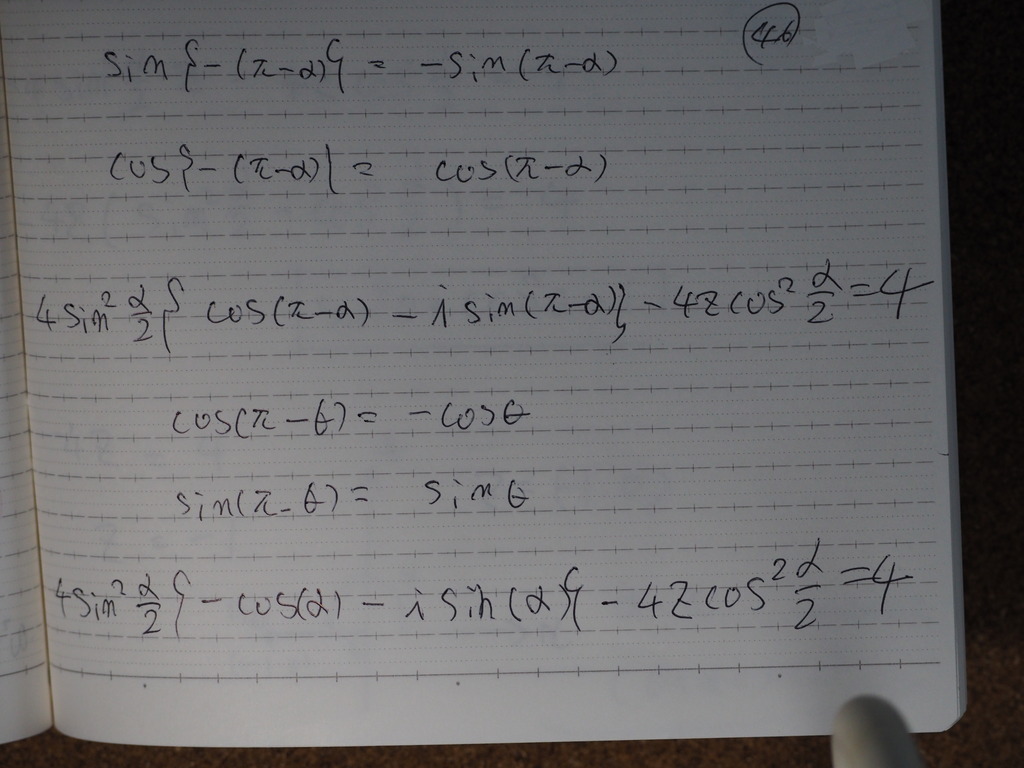 (46)
sin{-(π-α)} = -sin(π-α)
cos{-(π-α)} = cos(π-α)
4sin² α/2 { cos(π-α) - i sin(π-α)} - 4z cos² α/2 = 4
cos(π-θ) = -cosθ
sin(π-θ) = sinθ
4sin² α/2 { -cos(α) - i sin(α)} - 4z cos² α/2 = 4